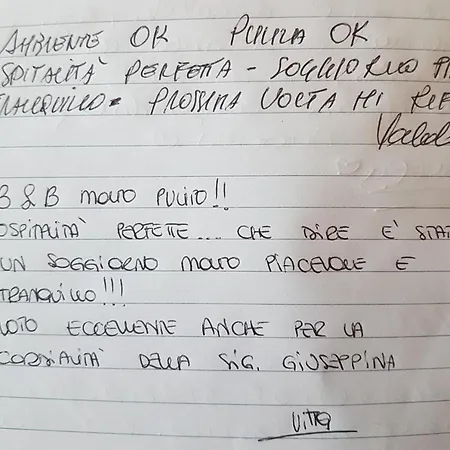 AMBIENTE OK PULIZIA OK
SPITALITÀ PERFETTA - SOGGIORNO
RANQUILLO - PROSSIMA VOLTA MI
B & B MOLTO PULITO!!
OSPITALITÀ PERFETTE... CHE DIRE E' STAT
UN SOGGIORNO MOLTO PIACEVOLE E
TRANQUILLO!!!
VOTO ECCELLENTE ANCHE PER LA
CORDIALITÀ DELLA SIG. GIUSEPPINA